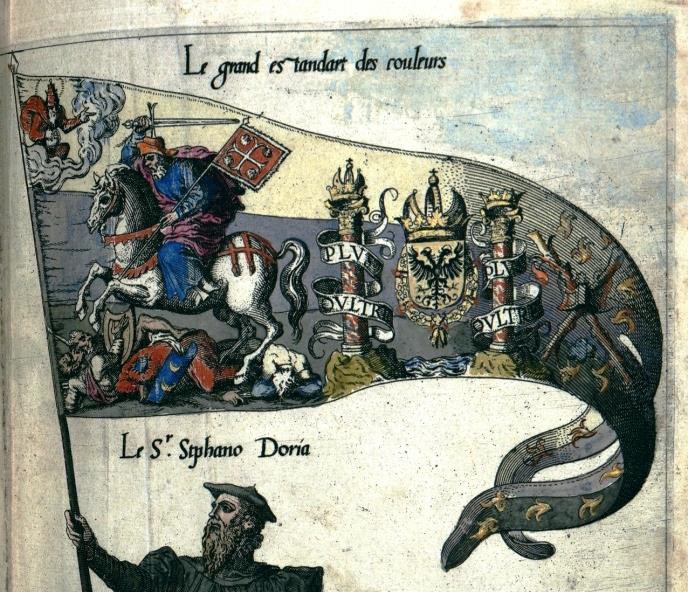 Le grand estandart des couleurs
PLV
OVLTR
PLV
OVLTR
Le Sr. Stphano Doria